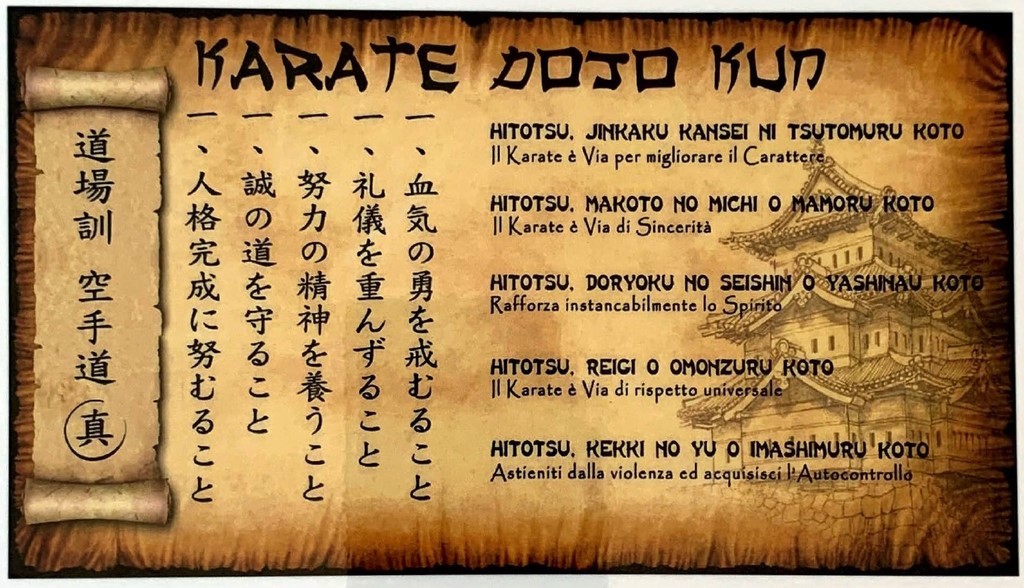 KARATE DOJO KUN
道場訓 空手道 真
一、人格完成に努むること
一、誠の道を守ること
一、努力の精神を養うこと
一、礼儀を重んずること
一、血気の勇を戒むること
HITOTSU. JINKAKU KANSEI NI TSUTOMURU KOTO
Il Karate è Via per migliorare il Carattere
HITOTSU. MAKOTO NO MICHI O MAMORU KOTO
Il Karate è Via di Sincerità
HITOTSU. DORYOKU NO SEISHIN O YASHINAU KOTO
Rafforza instancabilmente lo Spirito
HITOTSU. REIGI O OMONZURU KOTO
Il Karate è Via di rispetto universale
HITOTSU. KEKKI NO YU O IMASHIMURU KOTO
Astieniti dalla violenza ed acquisisci l'Autocontrollo